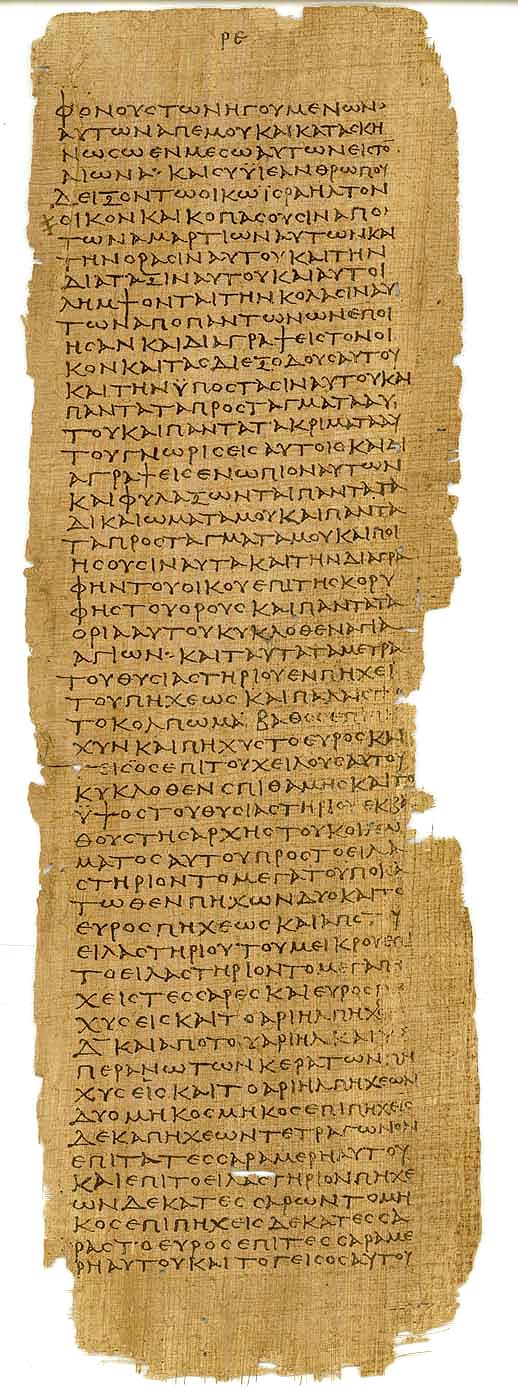 ΡΕ
ΦΟΝΟΥΣΤΩΝΗΓΟΥΜΕΝΩΝ
ΑΥΤΩΝΑΠΕΜΟΥΚΑΙΚΑΤΑΣΚΗ
ΝΩΣΩΕΝΜΕΣΩΑΥΤΩΝΕΙΣΤΟ
ΑΙΩΝΑ· ΚΑΙΣΥΥΙΕΑΝΘΡΩΠΟΥ
ΔΕΙΞΟΝΤΩΟΙΚΩΪΣΡΑΗΛΤΟΝ
ΟΙΚΟΝΚΑΙΚΟΠΑΣΟΥΣΙΝΑΠΟ
ΤΩΝΑΜΑΡΤΙΩΝΑΥΤΩΝΚΑΙ
ΤΗΝΟΡΑΣΙΝΑΥΤΟΥΚΑΙΤΗΝ
ΔΙΑΤΑΞΙΝΑΥΤΟΥΚΑΙΑΥΤΟΙ
ΛΗΜΨΟΝΤΑΙΤΗΝΚΟΛΑΣΙΝΑΥ
ΤΩΝΑΠΟΠΑΝΤΩΝΩΝΕΠΟΙ
ΗΣΑΝΚΑΙΔΙΑΓΡΑΨΕΙΣΤΟΝΟΙ
ΚΟΝΚΑΙΤΑΣΔΙΕΞΟΔΟΥΣΑΥΤΟΥ
ΚΑΙΤΗΝΫΠΟΣΤΑΣΙΝΑΥΤΟΥΚΑΙ
ΠΑΝΤΑΤΑΠΡΟΣΤΑΓΜΑΤΑΑΥ
ΤΟΥΚΑΙΠΑΝΤΑΤΑΚΡΙΜΑΤΑΑΥ
ΤΟΥΓΝΩΡΙΣΕΙΣΑΥΤΟΙΣΚΑΙΔΙ
ΑΓΡΑΨΕΙΣΕΝΩΠΙΟΝΑΥΤΩΝ
ΚΑΙΦΥΛΑΞΩΝΤΑΙΠΑΝΤΑΤΑ
ΔΙΚΑΙΩΜΑΤΑΜΟΥΚΑΙΠΑΝΤΑ
ΤΑΠΡΟΣΤΑΓΜΑΤΑΜΟΥΚΑΙΠΟΙ
ΗΣΟΥΣΙΝΑΥΤΑΚΑΙΤΗΝΔΙΑΓΡΑ
ΦΗΝΤΟΥΟΙΚΟΥΕΠΙΤΗΣΚΟΡΥ
ΦΗΣΤΟΥΟΡΟΥΣΚΑΙΠΑΝΤΑΤΑ
ΟΡΙΑΑΥΤΟΥΚΥΚΛΟΘΕΝΑΓΙΑ
ΑΓΙΩΝ· ΚΑΙΤΑΥΤΑΤΑΜΕΤΡΑ
ΤΟΥΘΥΣΙΑΣΤΗΡΙΟΥΕΝΠΗΧΕΙ
ΤΟΥΠΗΧΕΩΣΚΑΙΠΑΛΑΙΣΤΗΣ
ΤΟΚΟΛΠΩΜΑ ΒΑΘΟΣΕΠΙ
ΧΥΝΚΑΙΠΗΧΥΣΤΟΕΥΡΟΣΚΑΙ
ΓΕΙΣΟΣΕΠΙΤΟΥΧΕΙΛΟΥΣΑΥΤΟΥ
ΚΥΚΛΟΘΕΝΣΠΙΘΑΜΗΣΚΑΙΤΟ
ΫΨΟΣΤΟΥΘΥΣΙΑΣΤΗΡΙΟΥΕΚΒΑ
ΘΟΥΣΤΗΣΑΡΧΗΣΤΟΥΚΟΙΛΩ
ΜΑΤΟΣΑΥΤΟΥΠΡΟΣΤΟΕΙΛΑ
ΣΤΗΡΙΟΝΤΟΜΕΓΑΤΟΥΠΟΚΑ
ΤΩΘΕΝΠΗΧΩΝΔΥΟΚΑΙΤΟ
ΕΥΡΟΣΠΗΧΕΩΣΚΑΙΑΠΟΤΟΥ
ΕΙΛΑΣΤΗΡΙΟΥΤΟΥΜΕΙΚΡΟΥΕΠΙ
ΤΟΕΙΛΑΣΤΗΡΙΟΝΤΟΜΕΓΑΠΗ
ΧΕΙΣΤΕΣΣΑΡΕΣΚΑΙΕΥΡΟΣΠΗ
ΧΥΣΕΙΣΚΑΙΤΟΑΡΙΗΛΠΗΧ
Δ ΚΑΙΑΠΟΤΟΥΑΡΙΗΛΚΑΙΥ
ΠΕΡΑΝΩΤΩΝΚΕΡΑΤΩΝΠΗ
ΧΥΣΕΙΣΚΑΙΤΟΑΡΙΗΛΠΗΧΕΩΝ
ΔΥΟΜΗΚΟΣΜΗΚΟΣΕΠΙΠΗΧΕΙΣ
ΔΕΚΑΠΗΧΕΩΝΤΕΤΡΑΓΩΝΟΝ
ΕΠΙΤΑΤΕΣΣΑΡΑΜΕΡΗΑΥΤΟΥ
ΚΑΙΕΠΙΤΟΕΙΛΑΣΤΗΡΙΟΝΠΗΧΕ
ΩΝΔΕΚΑΤΕΣΣΑΡΩΝΤΟΜΗ
ΚΟΣΕΠΙΠΗΧΕΙΣΔΕΚΑΤΕΣΣΑ
ΡΑΣΤΟΕΥΡΟΣΕΠΙΤΕΣΣΑΡΑΜΕ
ΡΗΑΥΤΟΥΚΑΙΤΟΓΕΙΣΟΣΑΥΤΟΥ